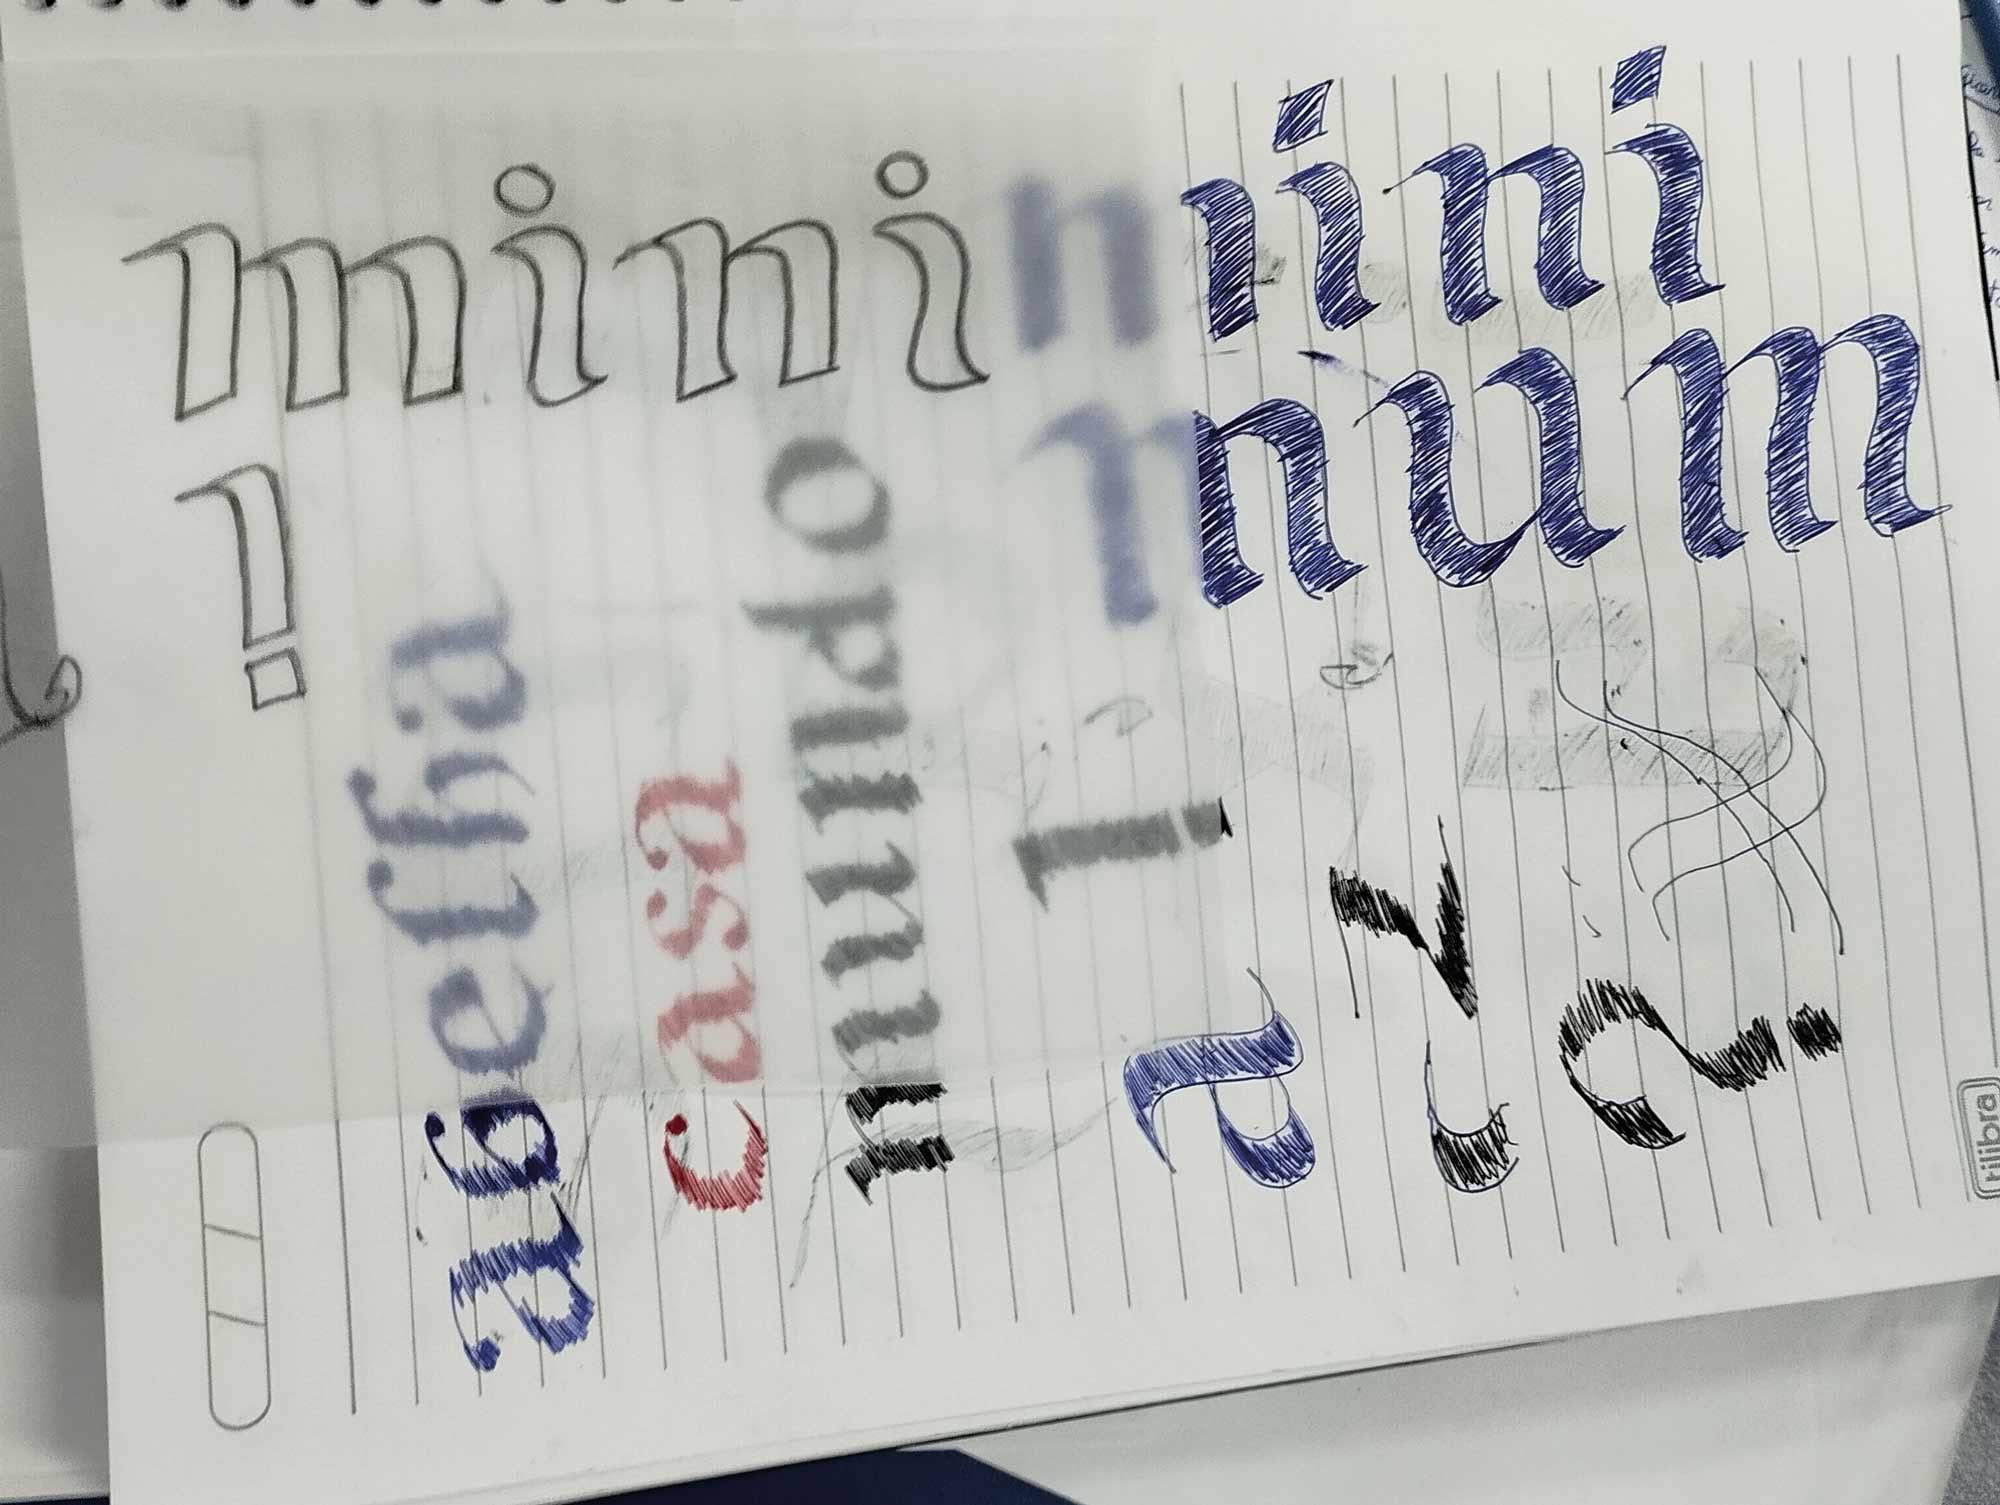 mini
!
mini
mum
abelha
casa
mundo
!
a
?
tilibra